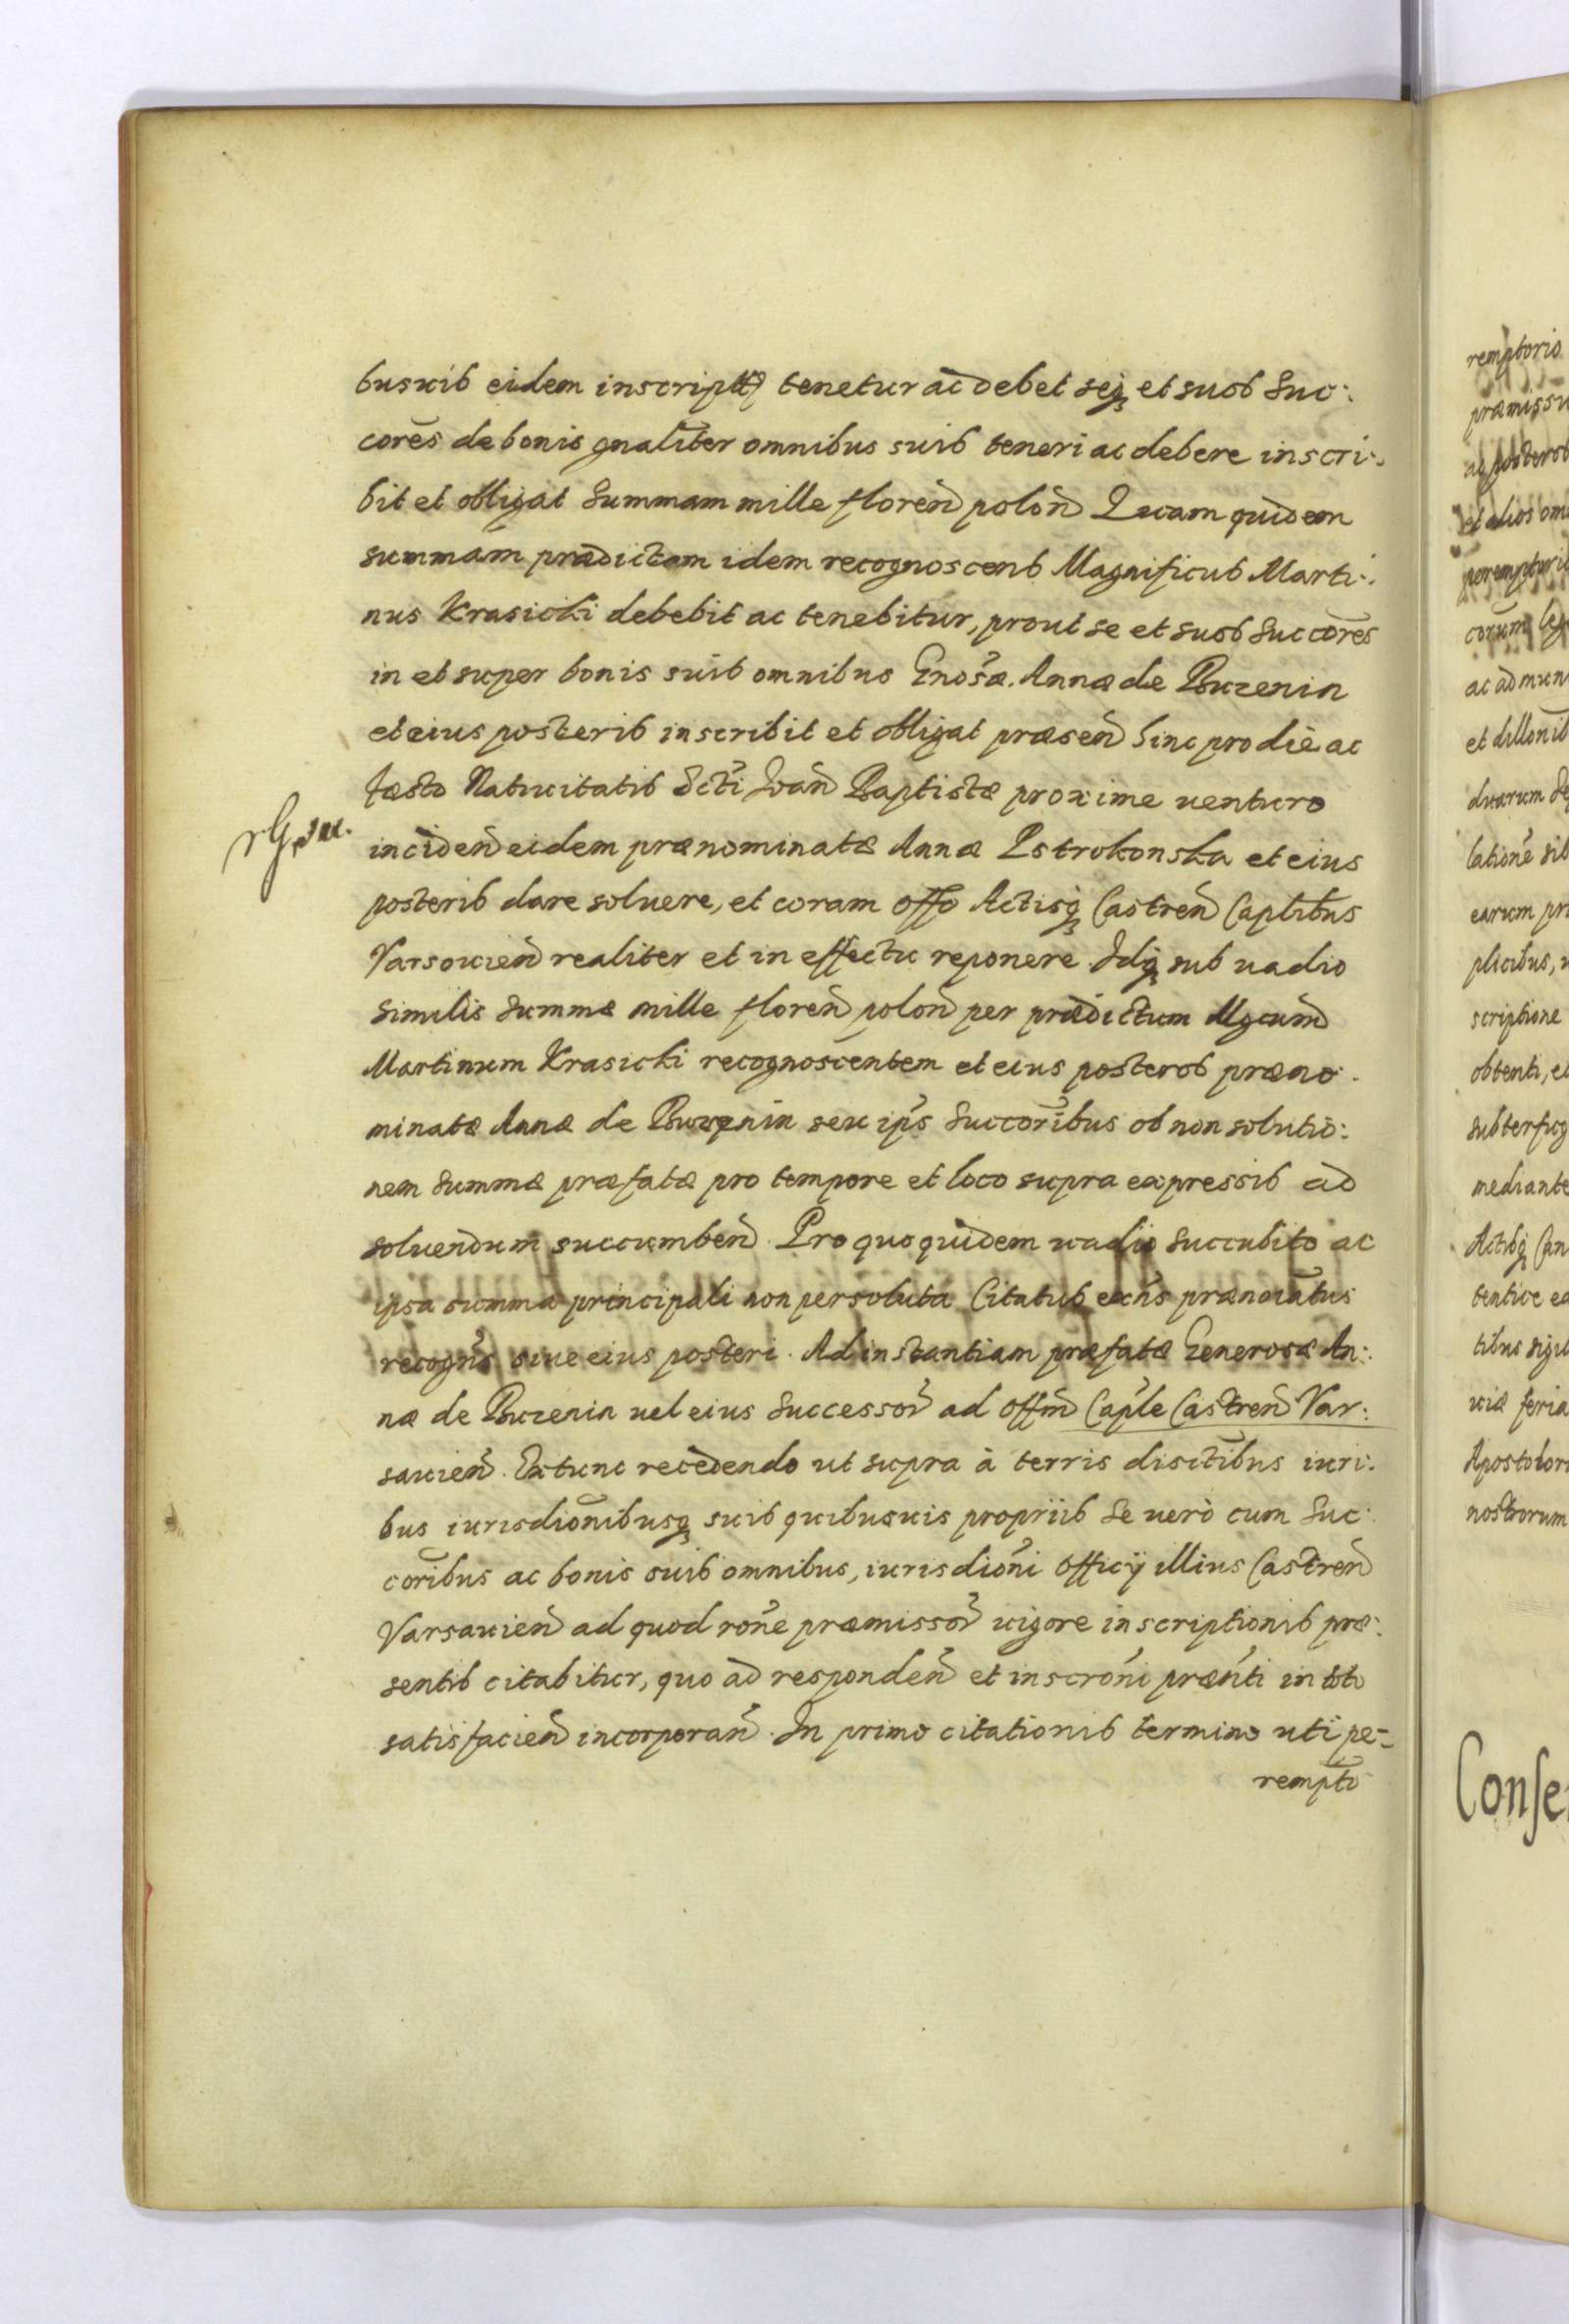 busuis eidem inscriptis tenetur ac debet seq et suos Suc:
cores de bonis gnaliter omnibus suis teneri ac debere inscri:
bit et obligat Summam mille floren polon Quam quidem
summam prædictam idem recognoscens Magnificus Marti:
nus Krasicki debebit ac tenebitur, prout se et suos Succores
in et super bonis suis omnibus Gnosæ Annæ de Buzenin
et eius posteris inscribit et obligat præsen hinc pro die ac
festo Natiuitatis Scti Joan Baptistæ proxime uenturo
inciden eidem prænominatæ Annæ Pstrokonska et eius
posteris dare soluere, et coram Offo Actisq Castren Caplibus
Varsouien realiter et in effectu reponere Idq sub uadio
similis Summæ mille floren polon per prædictum Mgcum
Martinum Krasicki recognoscentem et eius posteros præno:
minatæ Annæ de Buzenin seu ips Succoribus ob non solutio:
nem Summæ præfatæ pro tempore et loco supra expressis ad
soluendum succumben. Pro quo quidem uadio Succubito ac
ipsa summa principali non persoluta Citatus exns prænoiatus
recogns siue eius posteri. Ad instantiam præfatæ Generosæ An:
næ de Buzenin uel eius Successor ad Offm Caple Castren Var:
sauien. Extunc recedendo ut supra à terris disctibus iuri:
bus iurisdionibusq suis quibusuis propriis Se uerò cum Suc:
coribus ac bonis suis omnibus, iurisdioni Officij illius Castren
Varsauien ad quod rone præmissor uigore inscriptionis præ:
sentis citabitur, quo ad responden et inscroni prænti in toto
satisfacien incorporan. In primo citationis termino uti pe=
rempto
remptorio
præmissu
ac posteros
et alios om
peremptori
corum
ac ad mun
et dillonib
duarum
latione sib
earum pr
plicibus, u
scriptione
obtenti, e
subterfug
mediante
Actisq Can
tentice ea
tibus sigil
uiæ feria
Apostolor
nostrorum
Conse